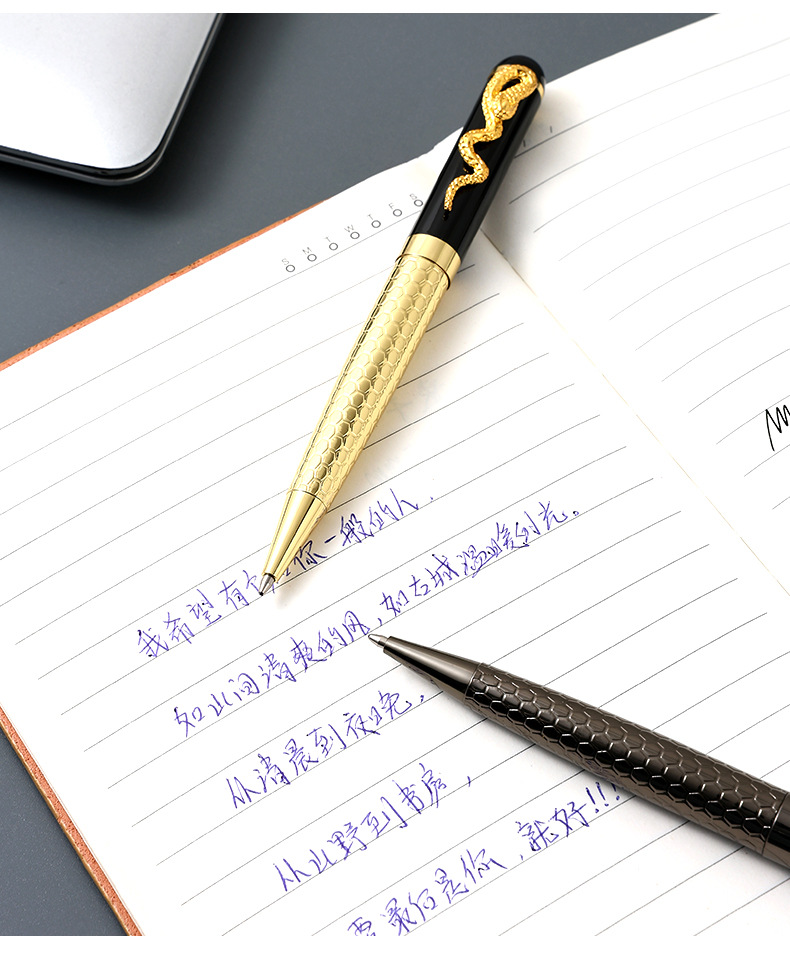 S M T W T F S
我希望有个 你一般的人.
如山间清爽的风,如古城温暖的光。
从清晨到夜晚,
从山野到书房,
要最后是你,就好!!!